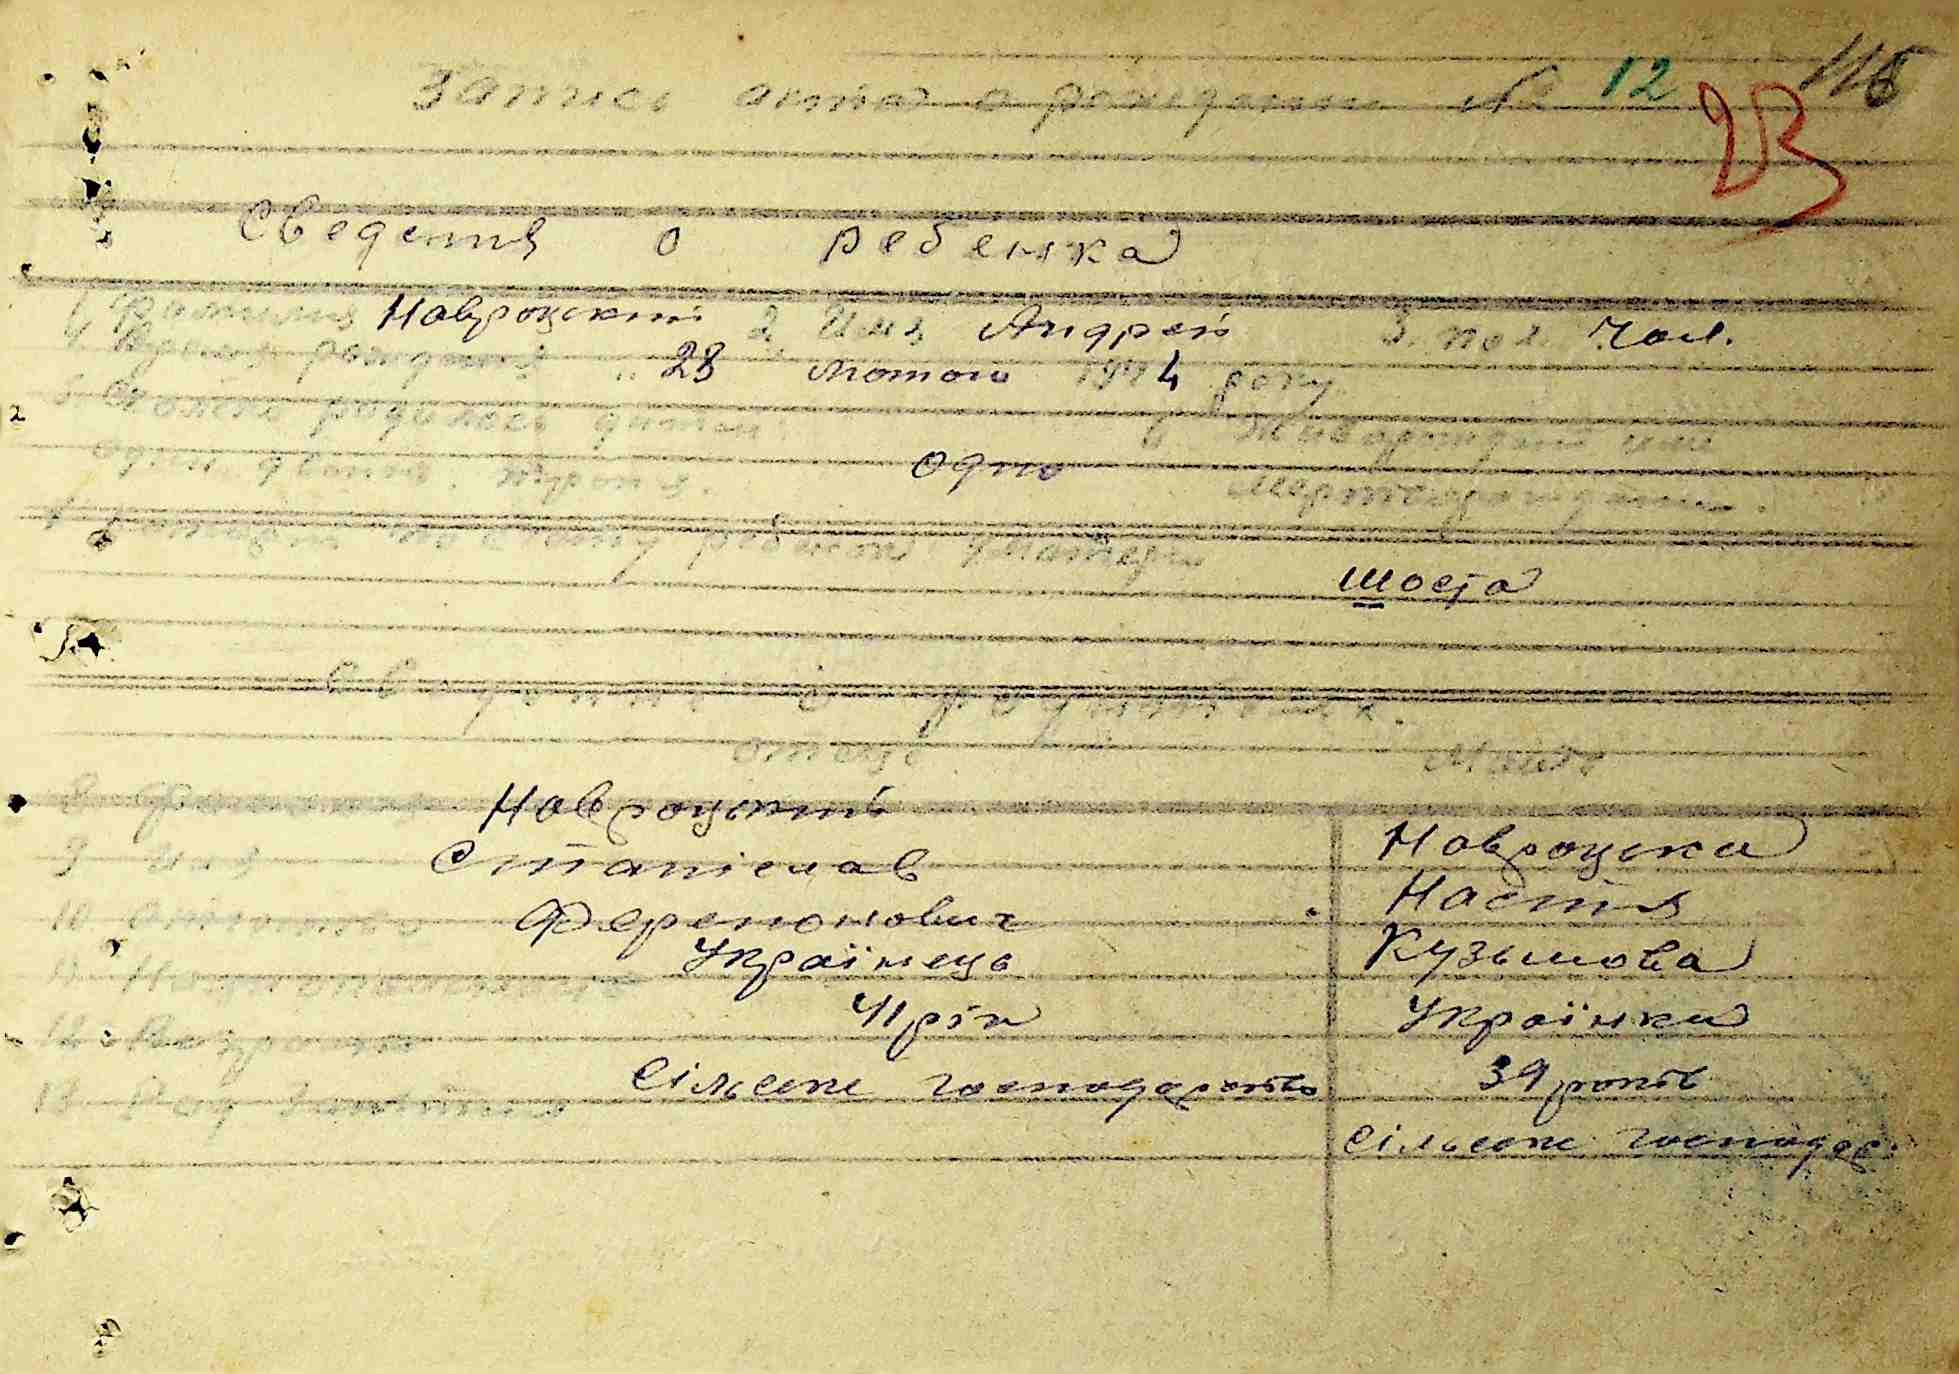 Запись акта о рождении № 12 116
23
Сведения о ребенка
1, Фамилия Навроцкий 2, Имя Андрей 3. пол. Чол.
4, Время рождения "28 лютого 1944 року
5. Сколько родилось детей: 6 Живорожденный или
один двойня, тройня. одно мертворожденный.
7 который по счету ребенок у матери
шоста
Сведения о родителях.
отец. Мать
8 Фамилия Навроцкий Навроцка
9 имя Станіслав Настя
10 отчество Кузьмова
11 Национальность Українець Українка
12 Возраст 41 рік 39 років
13 Род занятия Сільське господарство Сільське господар.